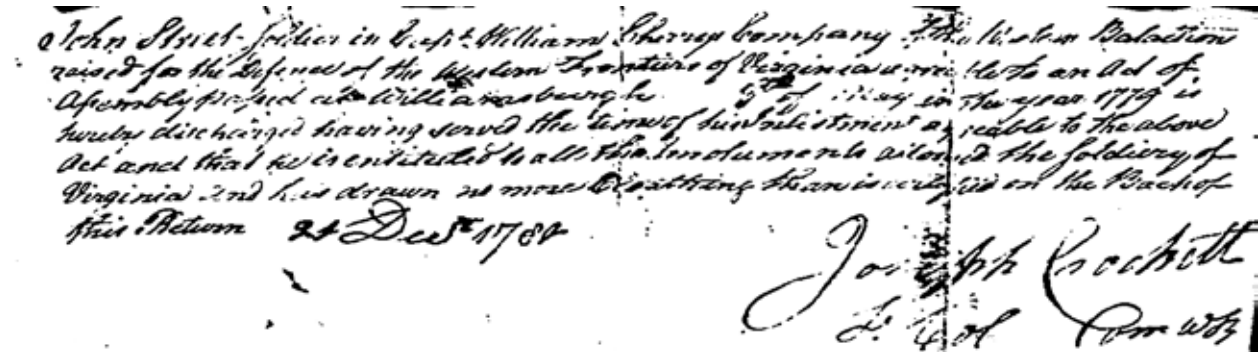 John Street Soldier in Capt. William Cherrys Company of the Western Batalion
raised for the Defence of the Western Frontiers of Virginia to an Act of
Assembly passed at Williamsburgh of May in the year 1779 is
hereby discharged having served the time of his Inlistment agreable to the above
Act and that he is entituled to all the Emoluments allowed the Soldiery of
Virginia and has drawn no more Cloathing than is on the Back of
this Return Decr 178
Joseph Crockett
Lt Col Com